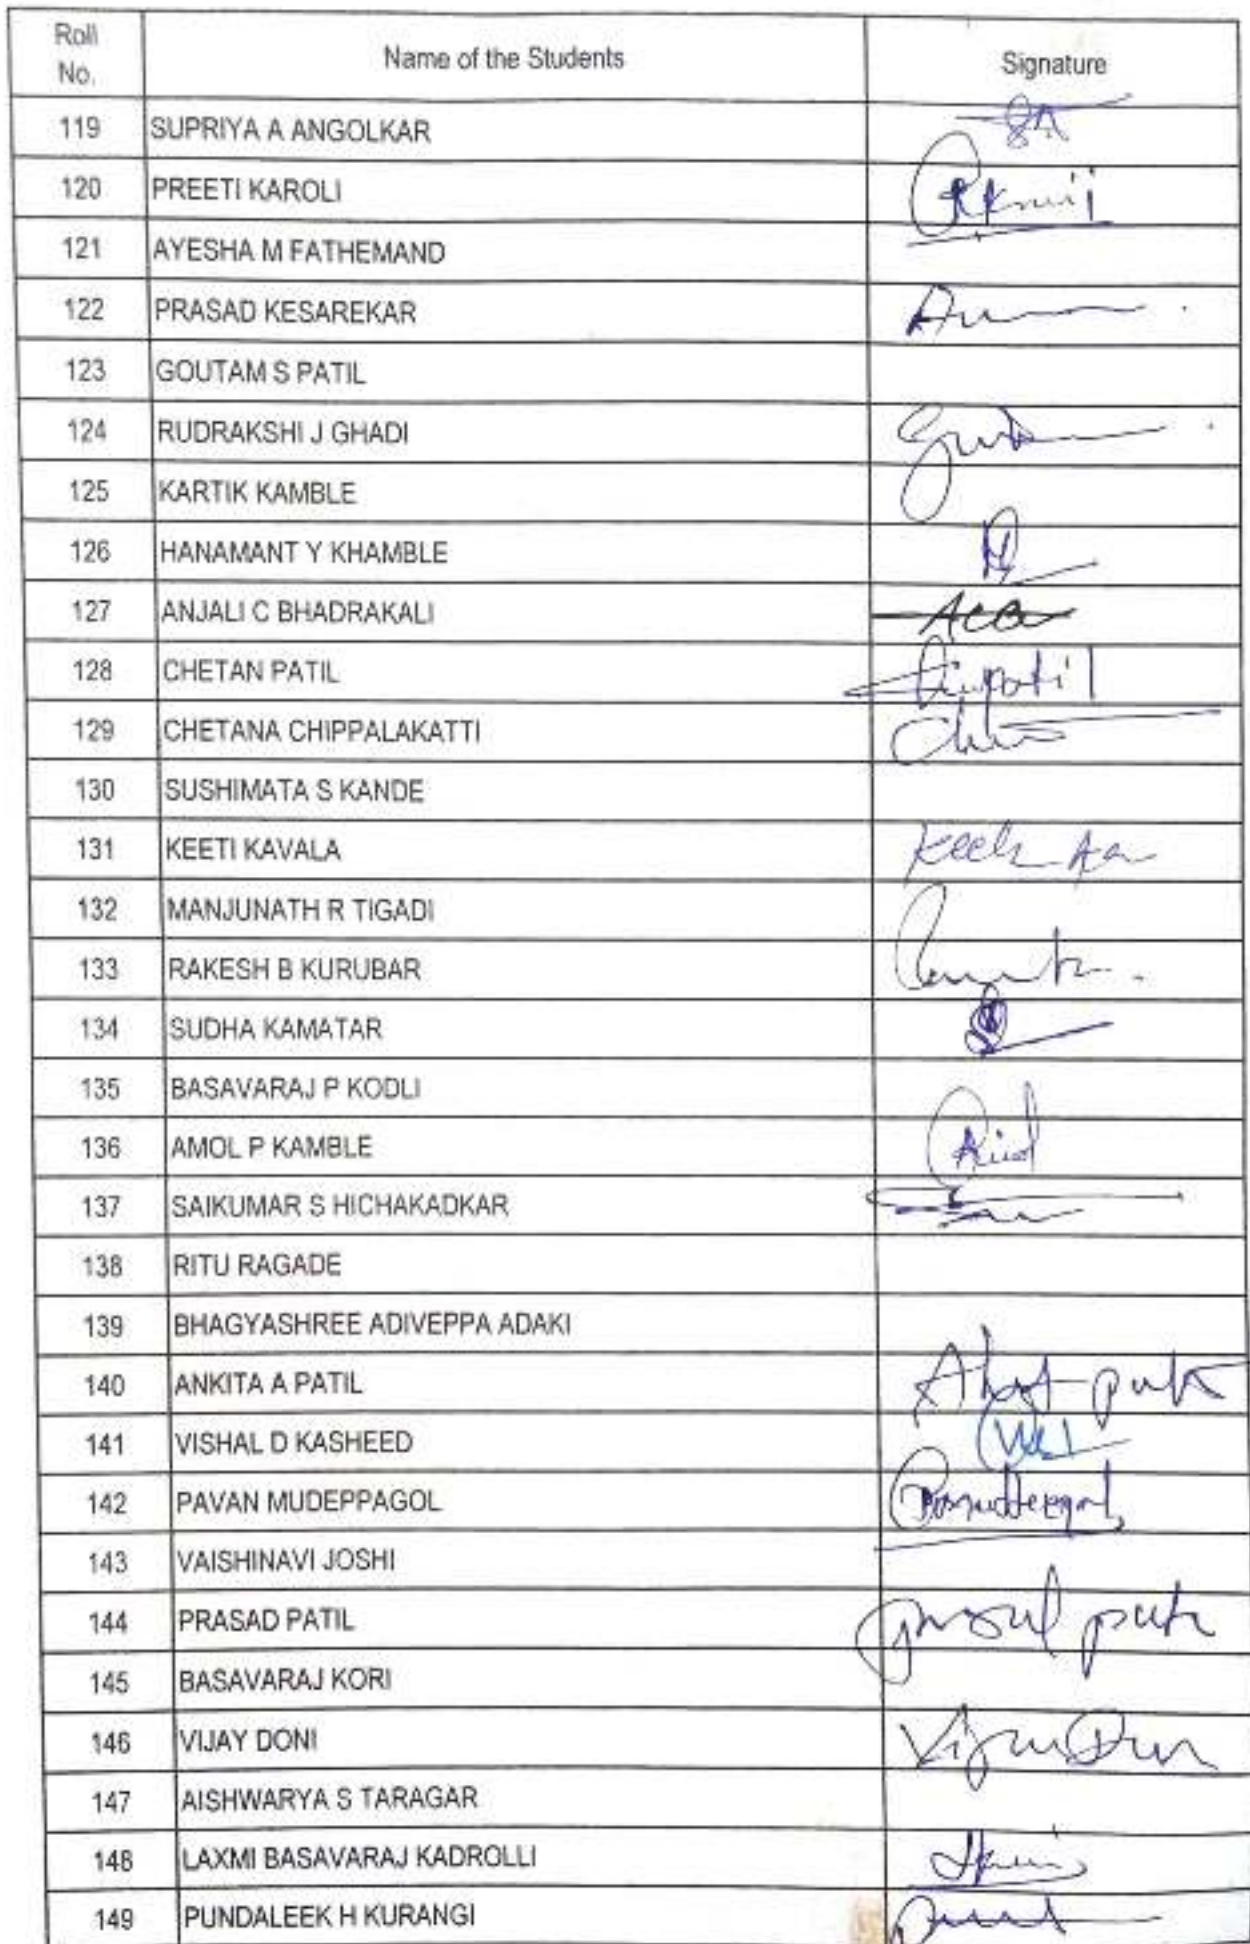 Roll No. Name of the Students Signature
119 SUPRIYA A ANGOLKAR SA
120 PREETI KAROLI
121 AYESHA M FATHEMAND
122 PRASAD KESAREKAR
123 GOUTAM S PATIL
124 RUDRAKSHI J GHADI
125 KARTIK KAMBLE
126 HANAMANT Y KHAMBLE
127 ANJALI C BHADRAKALI ACB
128 CHETAN PATIL
129 CHETANA CHIPPALAKATTI
130 SUSHIMATA S KANDE
131 KEETI KAVALA
132 MANJUNATH R TIGADI
133 RAKESH B KURUBAR
134 SUDHA KAMATAR
135 BASAVARAJ P KODLI
136 AMOL P KAMBLE
137 SAIKUMAR S HICHAKADKAR
138 RITU RAGADE
139 BHAGYASHREE ADIVEPPA ADAKI
140 ANKITA A PATIL
141 VISHAL D KASHEED
142 PAVAN MUDEPPAGOL
143 VAISHINAVI JOSHI
144 PRASAD PATIL
145 BASAVARAJ KORI
146 VIJAY DONI
147 AISHWARYA S TARAGAR
148 LAXMI BASAVARAJ KADROLLI
149 PUNDALEEK H KURANGI